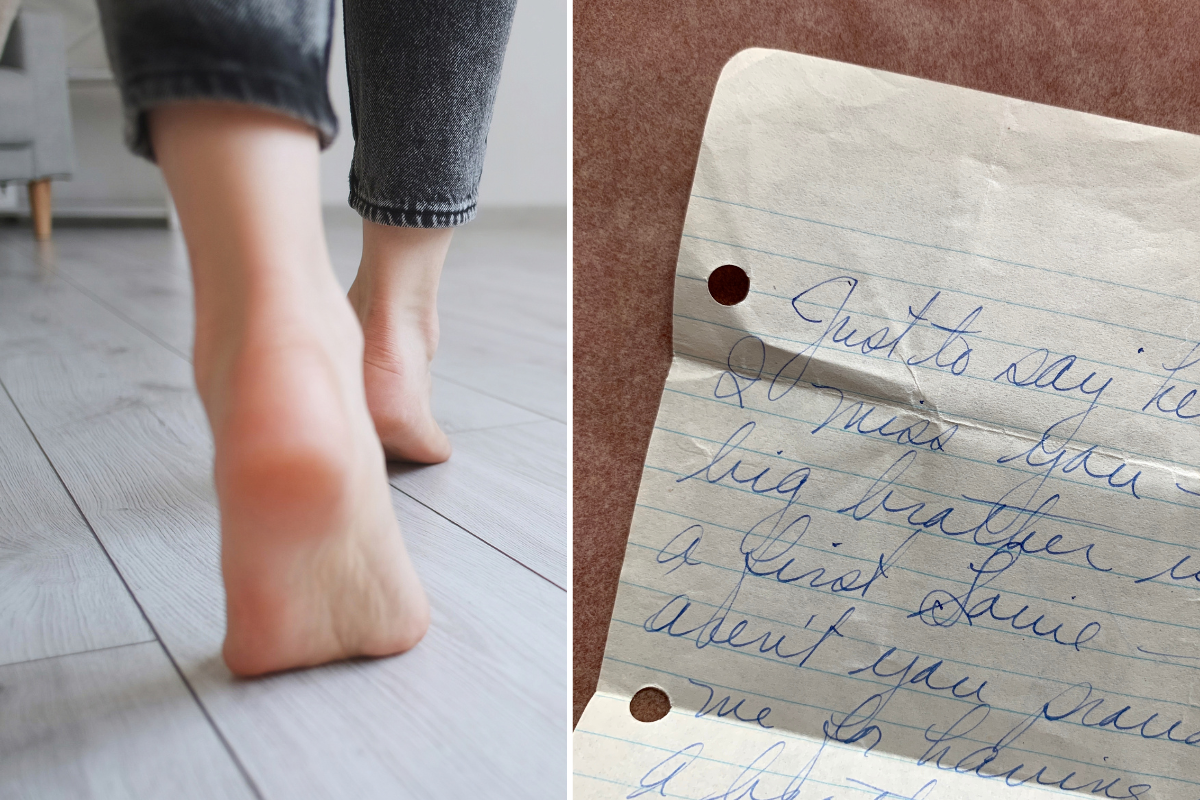 Just to say he
I miss you -
big brother
a first Louie -
aren't you proud
me for having
a